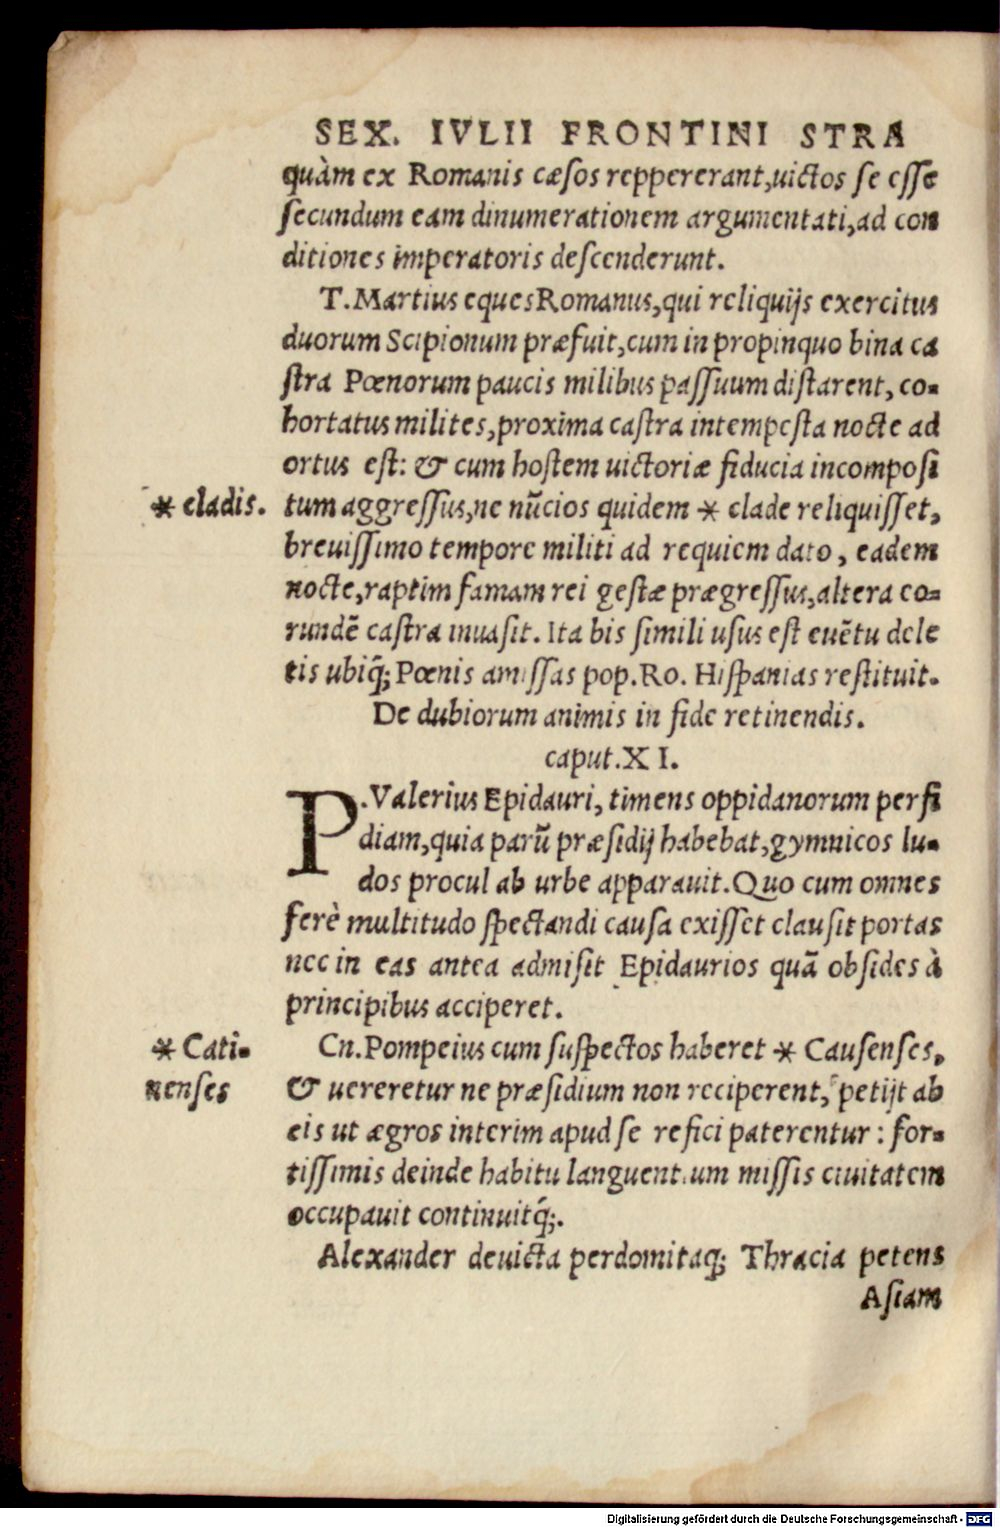 SEX. IVLII FRONTINI STRA
quàm ex Romanis cæsos reppererant,uictos se esse
secundum eam dinumerationem argumentati,ad con
ditiones imperatoris descenderunt.
T.Martius eques Romanus,qui reliquijs exercitus
duorum Scipionum præfuit,cum in propinquo bina ca
stra Pœnorum paucis milibus passuum distarent, co-
hortatus milites,proxima castra intempesta nocte ad
ortus est: & cum hostem uictoriæ fiducia incomposi
* cladis. tum aggressus,ne nũcios quidem * clade reliquisset,
breuissimo tempore militi ad requiem dato, eadem
nocte,raptim famam rei gestæ prægressus,altera eo-
rundẽ castra inuasit. Ita bis simili usus est euẽtu dele
tis ubiq́; Pœnis amissas pop.Ro. Hispanias restituit.
De dubiorum animis in fide retinendis.
caput.XI.
P.Valerius Epidauri, timens oppidanorum perfi
diam,quia parũ præsidij habebat,gymnicos lu-
dos procul ab urbe apparauit.Quo cum omnes
ferè multitudo spectandi causa exisset clausit portas
nec in eas antea admisit Epidaurios quã obsides à
principibus acciperet.
* Cati- Cn.Pompeius cum suspectos haberet * Causenses,
nenses & uereretur ne præsidium non reciperent, petijt ab
eis ut ægros interim apud se refici paterentur : for-
tissimis deinde habitu languentium missis ciuitatem
occupauit continuitq́;.
Alexander deuicta perdomitaq; Thracia petens
Asiam
Digitalisierung gefördert durch die Deutsche Forschungsgemeinschaft - DFG